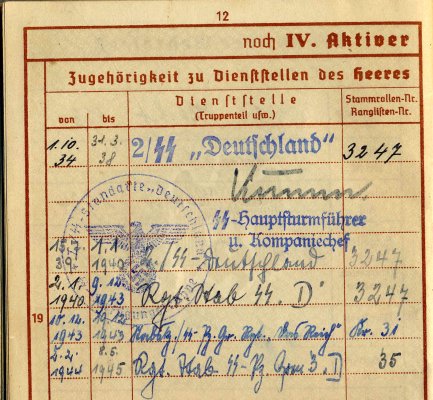 12
noch IV. Aktiver
Zugehörigkeit zu Dienststellen des Heeres
von bis Dienststelle (Truppenteil usw.) Stammrollen-Nr. Ranglisten-Nr.
1.10. 34 31.3. 38 2/SS „Deutschland" 3247
SS-Hauptsturmführer
u. Kompaniechef
1940 2./SS-Deutschland 3247
2.1. 1940 9.12. 1943 Rgt. Stab SS. „D" 3247
19
10.12. 1943 1943 SS Pz. Gr. Rgt. „Das Reich" Nr. 31
2.2. 1944 8.5. 1945 Rgt. Stab SS-Pz. Gren. 3. D 35